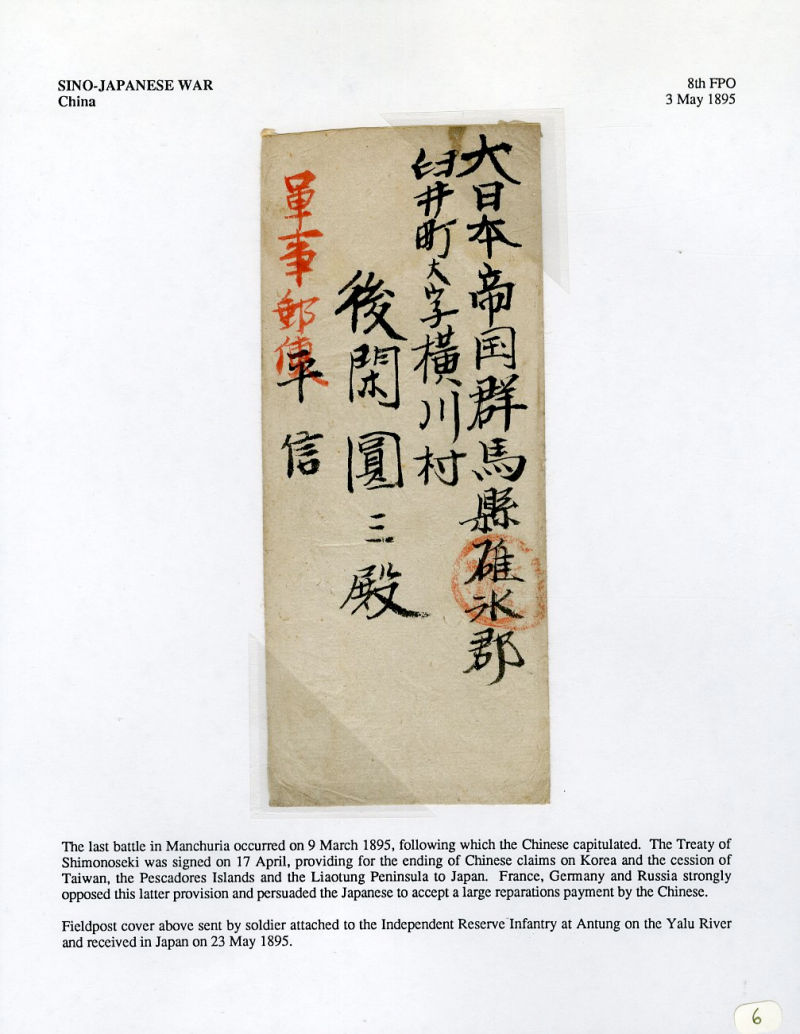 SINO-JAPANESE WAR
China
8th FPO
3 May 1895
大日本帝国群馬縣碓氷郡
臼井町大字横川村
後閑圓三殿
軍事郵便
平信
The last battle in Manchuria occurred on 9 March 1895, following which the Chinese capitulated. The Treaty of
Shimonoseki was signed on 17 April, providing for the ending of Chinese claims on Korea and the cession of
Taiwan, the Pescadores Islands and the Liaotung Peninsula to Japan. France, Germany and Russia strongly
opposed this latter provision and persuaded the Japanese to accept a large reparations payment by the Chinese.
Fieldpost cover above sent by soldier attached to the Independent Reserve Infantry at Antung on the Yalu River
and received in Japan on 23 May 1895.
6